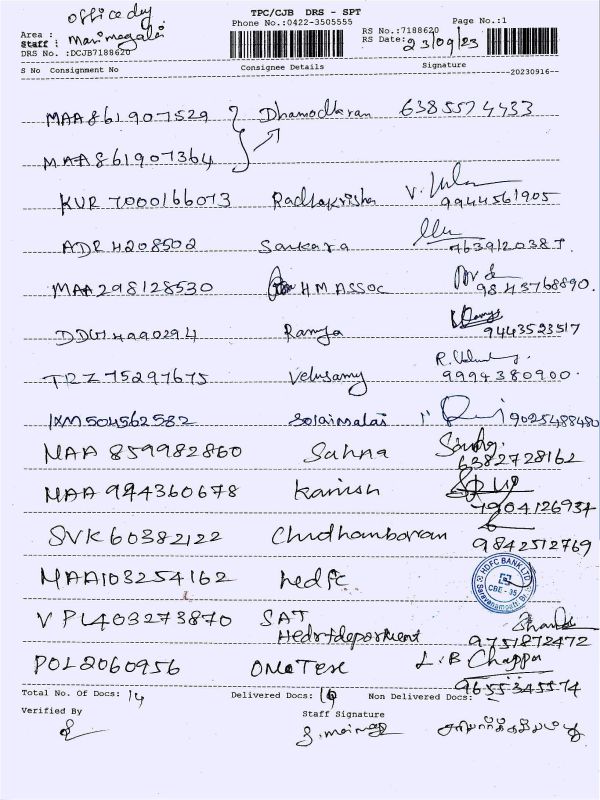 office dly
TPC/CJB DRS - SPT
Phone No.:0422-3505555
Page No.:1
RS No.:7188620
Area :
Staff : Marimagalai
RS Date: 23/09/23
DRS No. :DCJB7188620
S No Consignment No Consignee Details Signature
20230916
MAA861907529 Dhamodharan 6385574433
MAA861907364
KUR 7000166073 Radhakrisha V.
9944561905
ADR4208502 Sankara
7639120387
MAA298128530 HM ASSOC
9843768890.
Ramya
9443523517
TRZ75297675 Velusamy R.
9994380900.
IXM504562582 Solaimalai 9025488480
MAA 859982860 Sahna
6382728162
MAA 944360678 Kanish
7904126934
SVK60382122 Chidhambaram
9842512769
MAA103254162 hedfc HDFC BANK LTD
CBE - 35
VPL403273870 SAT
9751872472
POL2060956 L.B Chappa
9655345574
Total No. Of Docs: 14 Delivered Docs: Non Delivered Docs:
Verified By Staff Signature